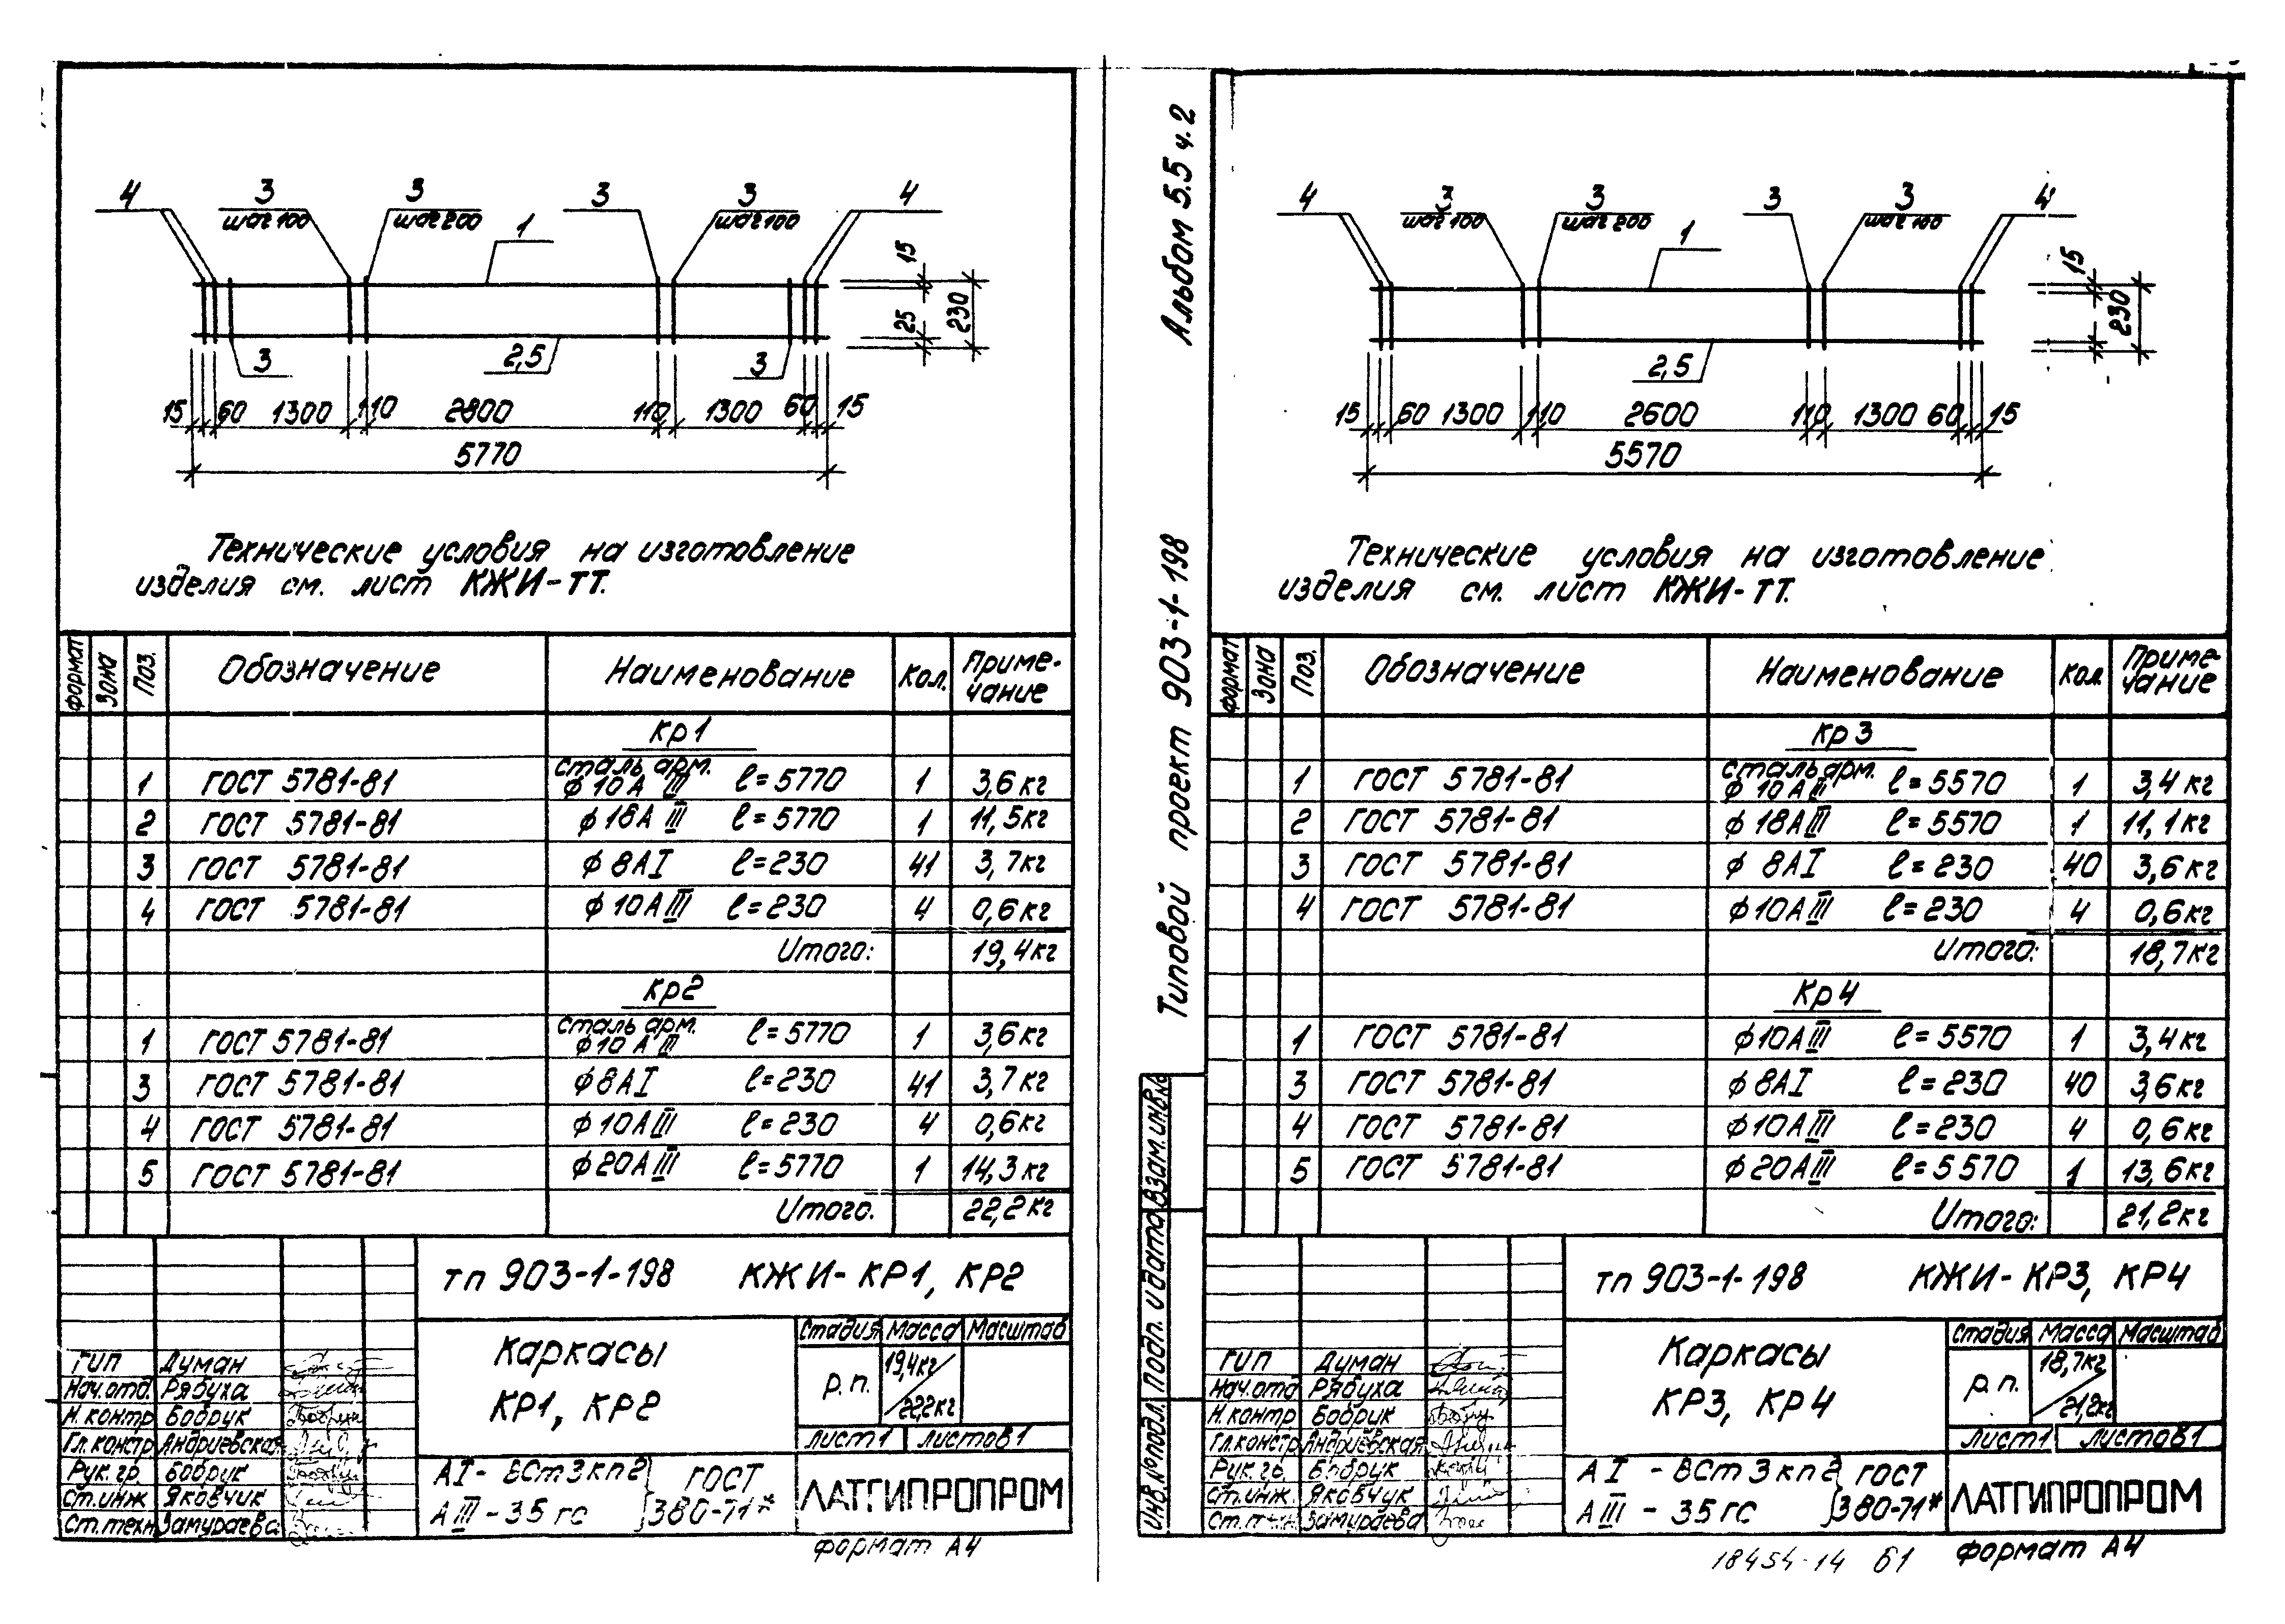 4 3 3 3 3 4
шаг 100 шаг 200 шаг 100
1
15
25
230
3 2,5 3
15 60 1300 110 2800 110 1300 60 15
5770
Технические условия на изготовление
изделия см. лист КЖИ-ТТ.
формат Зона Поз. Обозначение Наименование Кол. Приме-
чание
Кр1
1 ГОСТ 5781-81 сталь арм. ϕ10АIII ℓ=5770 1 3,6кг
2 ГОСТ 5781-81 ϕ18АIII ℓ=5770 1 11,5кг
3 ГОСТ 5781-81 ϕ8АI ℓ=230 41 3,7кг
4 ГОСТ 5781-81 ϕ10АIII ℓ=230 4 0,6кг
Итого: 19,4кг
Кр2
1 ГОСТ 5781-81 сталь арм. ϕ10АIII ℓ=5770 1 3,6кг
3 ГОСТ 5781-81 ϕ8АI ℓ=230 41 3,7кг
4 ГОСТ 5781-81 ϕ10АIII ℓ=230 4 0,6кг
5 ГОСТ 5781-81 ϕ20АIII ℓ=5770 1 14,3кг
Итого. 22,2кг
тп 903-1-198 КЖИ-КР1, КР2
Каркасы
КР1, КР2
Стадия Масса Масштаб
р.п. 19,4кг/22,2кг
лист1 листов1
ГИП Думан
Нач.отд. Рябуха
Н.контр Бобрик
Гл.констр Андриевская
Рук.гр. Бобрик
Ст.инж Яковчук
Ст.техн Замураева
АI-ВСт3кп2 ГОСТ
АIII-35гс 380-71*
ЛАТГИПРОПРОМ
формат А4
Альбом 5.5 ч.2
Типовой проект 903-1-198
Инв.№подл. Подп. и дата Взам.инв.№
4 3 3 3 3 4
шаг 100 шаг 200 шаг 100
1
15
230
2,5
15 60 1300 110 2600 110 1300 60 15
5570
Технические условия на изготовление
изделия см. лист КЖИ-ТТ.
формат Зона Поз. Обозначение Наименование Кол. Приме-
чание
Кр3
1 ГОСТ 5781-81 сталь арм. ϕ10АIII ℓ=5570 1 3,4кг
2 ГОСТ 5781-81 ϕ18АIII ℓ=5570 1 11,1кг
3 ГОСТ 5781-81 ϕ8АI ℓ=230 40 3,6кг
4 ГОСТ 5781-81 ϕ10АIII ℓ=230 4 0,6кг
Итого: 18,7кг
Кр4
1 ГОСТ 5781-81 ϕ10АIII ℓ=5570 1 3,4кг
3 ГОСТ 5781-81 ϕ8АI ℓ=230 40 3,6кг
4 ГОСТ 5781-81 ϕ10АIII ℓ=230 4 0,6кг
5 ГОСТ 5781-81 ϕ20АIII ℓ=5570 1 13,6кг
Итого: 21,2кг
тп 903-1-198 КЖИ-КР3, КР4
Каркасы
КР3, КР4
Стадия Масса Масштаб
р.п. 18,7кг/21,2кг
лист1 листов1
ГИП Думан
Нач.отд Рябуха
Н.контр Бобрик
Гл.констр Андриевская
Рук.гр. Бобрик
Ст.инж. Яковчук
Ст.техн Замураева
АI-ВСт3кп2 ГОСТ
АIII-35гс 380-71*
ЛАТГИПРОПРОМ
18454-14 61 формат А4